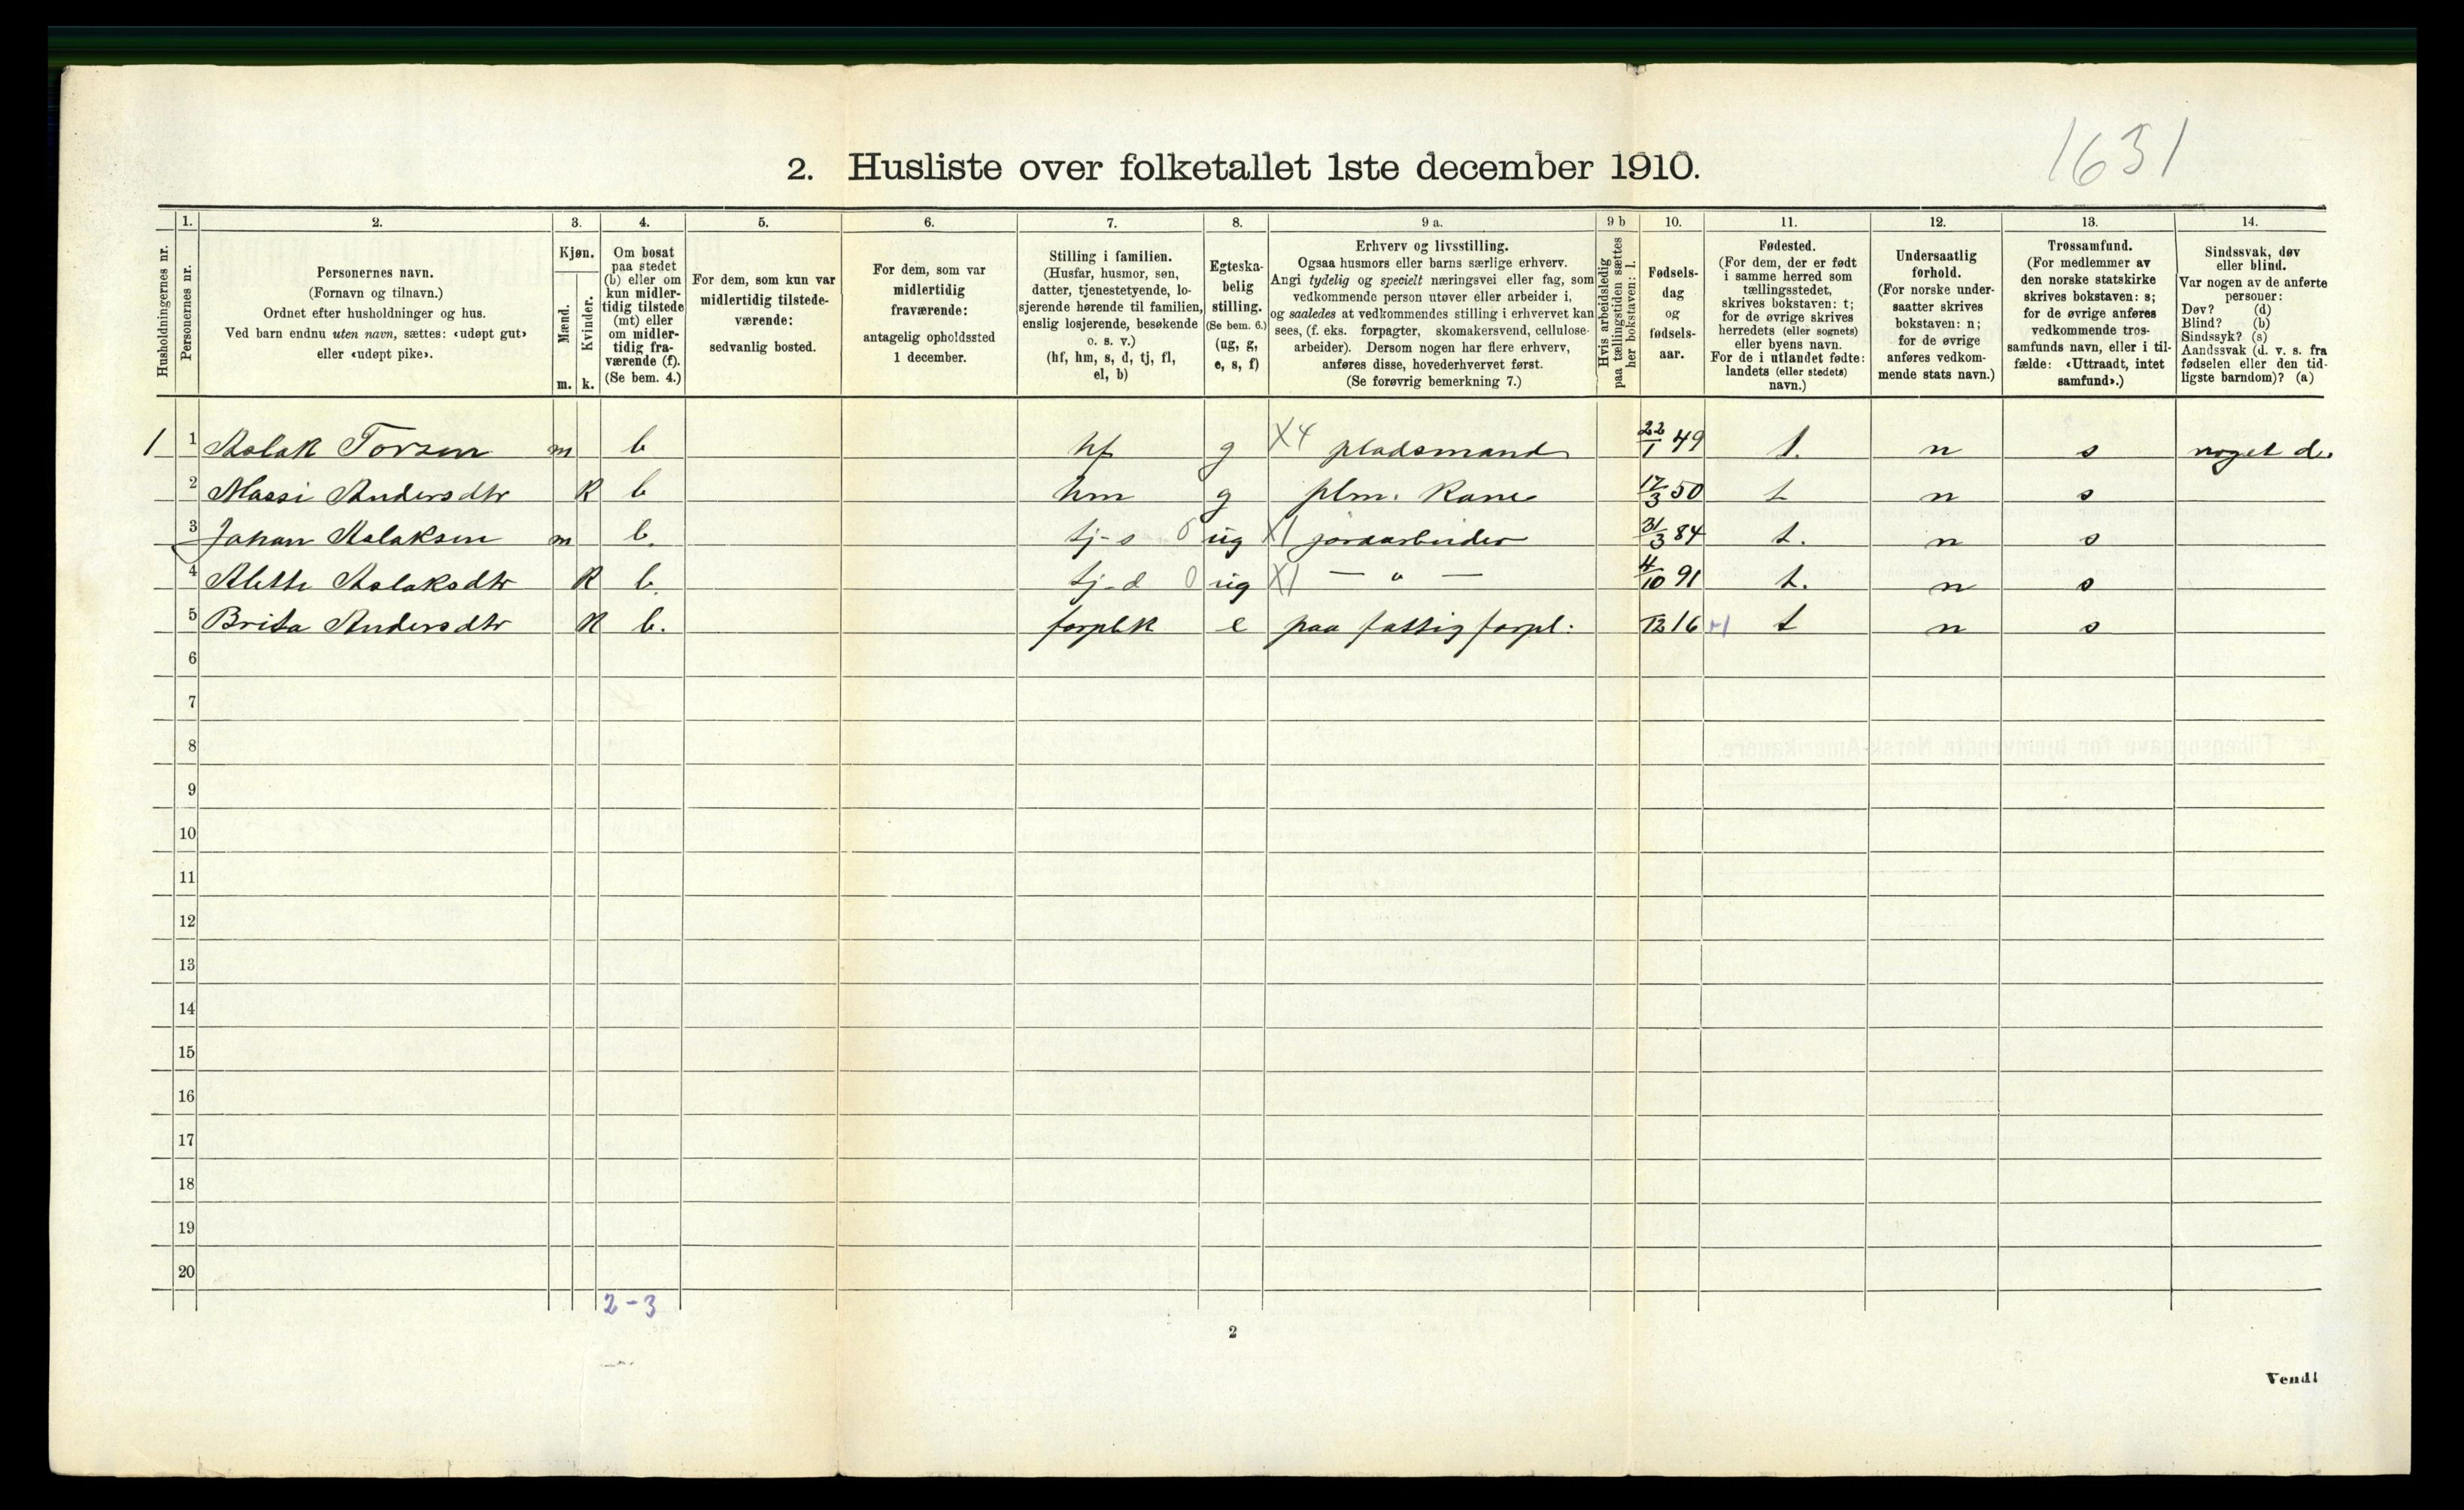 1631
2. Husliste over folketallet 1ste december 1910.
Husholdningernes nr.
1.
Personernes nr.
2.
Personernes navn.
(Fornavn og tilnavn.)
Ordnet efter husholdninger og hus.
Ved barn endnu uten navn, sættes: «udøpt gut»
eller «udøpt pike».
3.
Kjøn.
Mænd.
Kvinder.
m. k.
4.
Om bosat
paa stedet
(b) eller om
kun midler-
tidig tilstede
(mt) eller
om midler-
tidig fra-
værende (f).
(Se bem. 4.)
5.
For dem, som kun var
midlertidig tilstede-
værende:
sedvanlig bosted.
6.
For dem, som var
midlertidig
fraværende:
antagelig opholdssted
1 december.
7.
Stilling i familien.
(Husfar, husmor, søn,
datter, tjenestetyende, lo-
sjerende hørende til familien,
enslig losjerende, besøkende
o. s. v.)
(hf, hm, s, d, tj, fl,
el, b)
8.
Egteska-
belig
stilling.
(Se bem. 6.)
(ug, g,
e, s, f)
9 a.
Erhverv og livsstilling.
Ogsaa husmors eller barns særlige erhverv.
Angi tydelig og specielt næringsvei eller fag, som
vedkommende person utøver eller arbeider i,
og saaledes at vedkommendes stilling i erhvervet kan
sees, (f. eks. forpagter, skomakersvend, cellulose-
arbeider). Dersom nogen har flere erhverv,
anføres disse, hovederhvervet først.
(Se forøvrig bemerkning 7.)
9 b
Hvis arbeidsledig
paa tællingstiden sættes
her bokstaven: l.
10.
Fødsels-
dag
og
fødsels-
aar.
11.
Fødested.
(For dem, der er født
i samme herred som
tællingsstedet,
skrives bokstaven: t;
for de øvrige skrives
herredets (eller sognets)
eller byens navn.
For de i utlandet fødte:
landets (eller stedets)
navn.)
12.
Undersaatlig
forhold.
(For norske under-
saatter skrives
bokstaven: n;
for de øvrige
anføres vedkom-
mende stats navn.)
13.
Trossamfund.
(For medlemmer av
den norske statskirke
skrives bokstaven: s;
for de øvrige anføres
vedkommende tros-
samfunds navn, eller i til-
fælde: «Uttraadt, intet
samfund».)
14.
Sindssvak, døv
eller blind.
Var nogen av de anførte
personer:
Døv? (d)
Blind? (b)
Sindssyk? (s)
Aandssvak (d. v. s. fra
fødselen eller den tid-
ligste barndom)? (a)
1 1 Aslak Torsen m b hf g X4 pladsmand 22/1 49 t. n s noget d.
2 Massi Andersdtr K b hm g plm. Kone 17/3 50 t n s
3 Johan Aslaksen m b. tj-s 0 ug X1 jordarbeider 31/3 84 t. n s
4 Alette Aslaksdtr K b. tj-d 0 ug X1 — " — 4/10 91 t. n s
5 Brita Andersdtr K b. forplk e paa fattigforpl: 12 16 t n s
6
7
8
9
10
11
12
13
14
15
16
17
18
19
20
2-3
2
Vend!